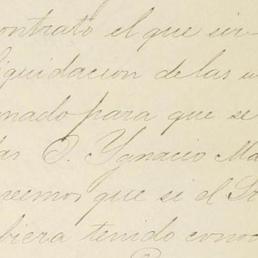 contrato el que sir
liquidacion de las
nado para que se
las D. Ygnacio Ma
reemos que si el Sr
biera tenido conoc